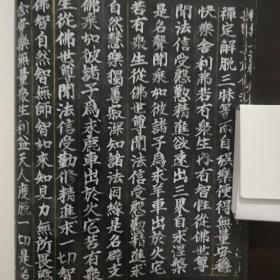 禪定解脫三昧等而自娛樂便得無量安隱
快樂舍利弗若有衆生内有智性從佛世尊
聞法信受慇懃精進欲速出三界自求涅槃
是名聲聞乘如彼諸子為求羊車出於火宅
若有衆生從佛世尊聞法信受慇懃精進求
自然慧樂獨善寂深知諸法因緣是名辟支
佛乘如彼諸子為求鹿車出於火宅若有衆
生從佛世尊聞法信受勤修精進求一切智
佛智自然智無師智如來知見力無所畏愍
念安樂無量衆生利益天人度脫一切是名